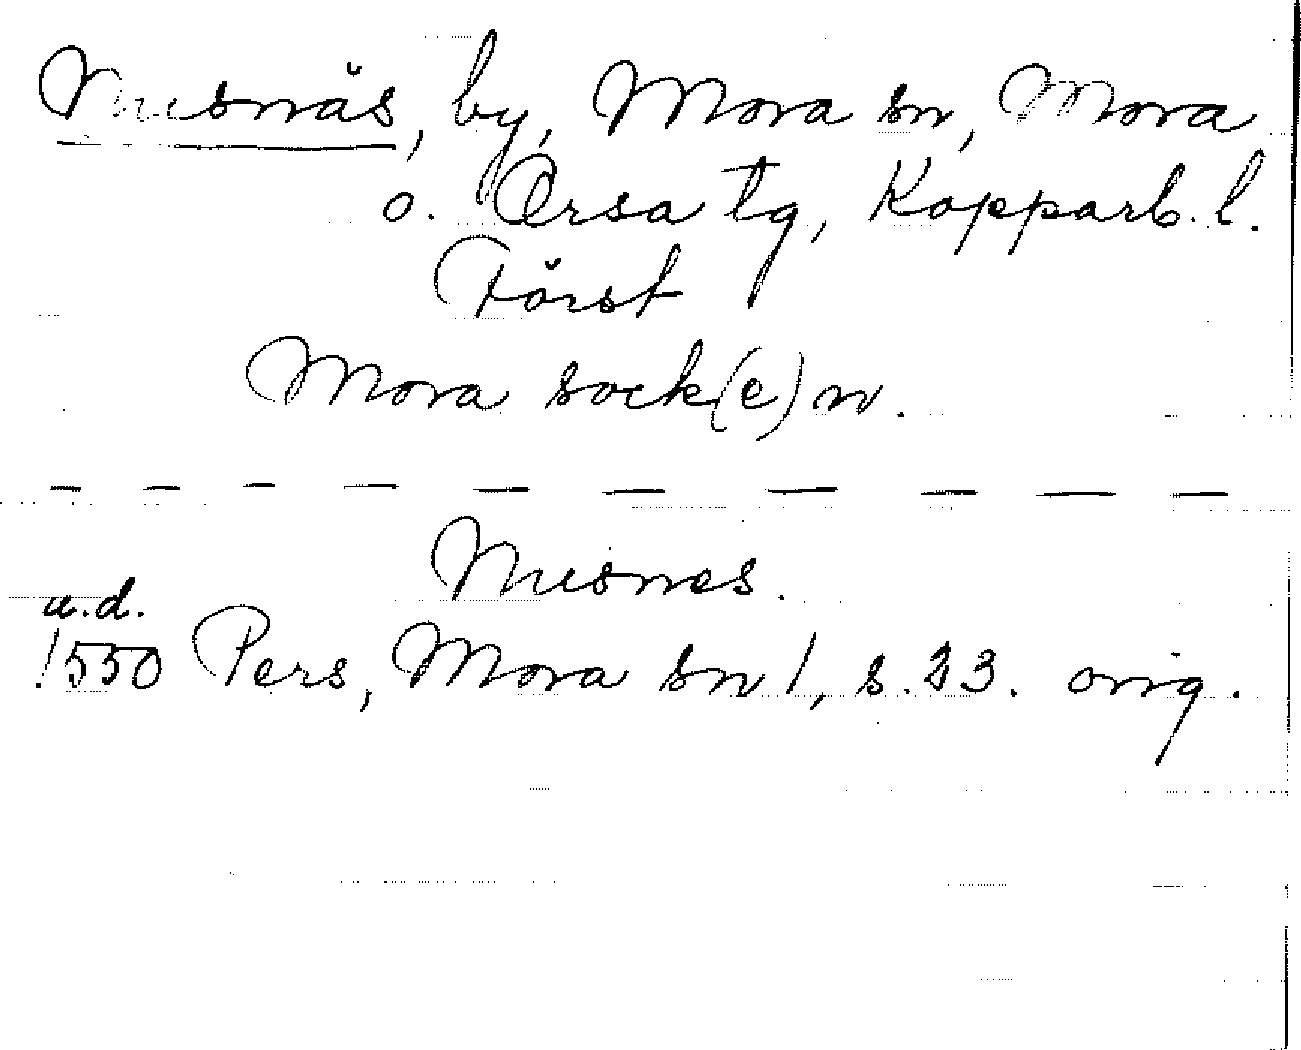 Nusnäs, by, Mora sn, Mora
o. Orsa tg, Kopparb. l.
Först
Mora sock(e)n.
Nusnes.
u.d.
1550 Pers, Mora sn 1, s. 33. orig.